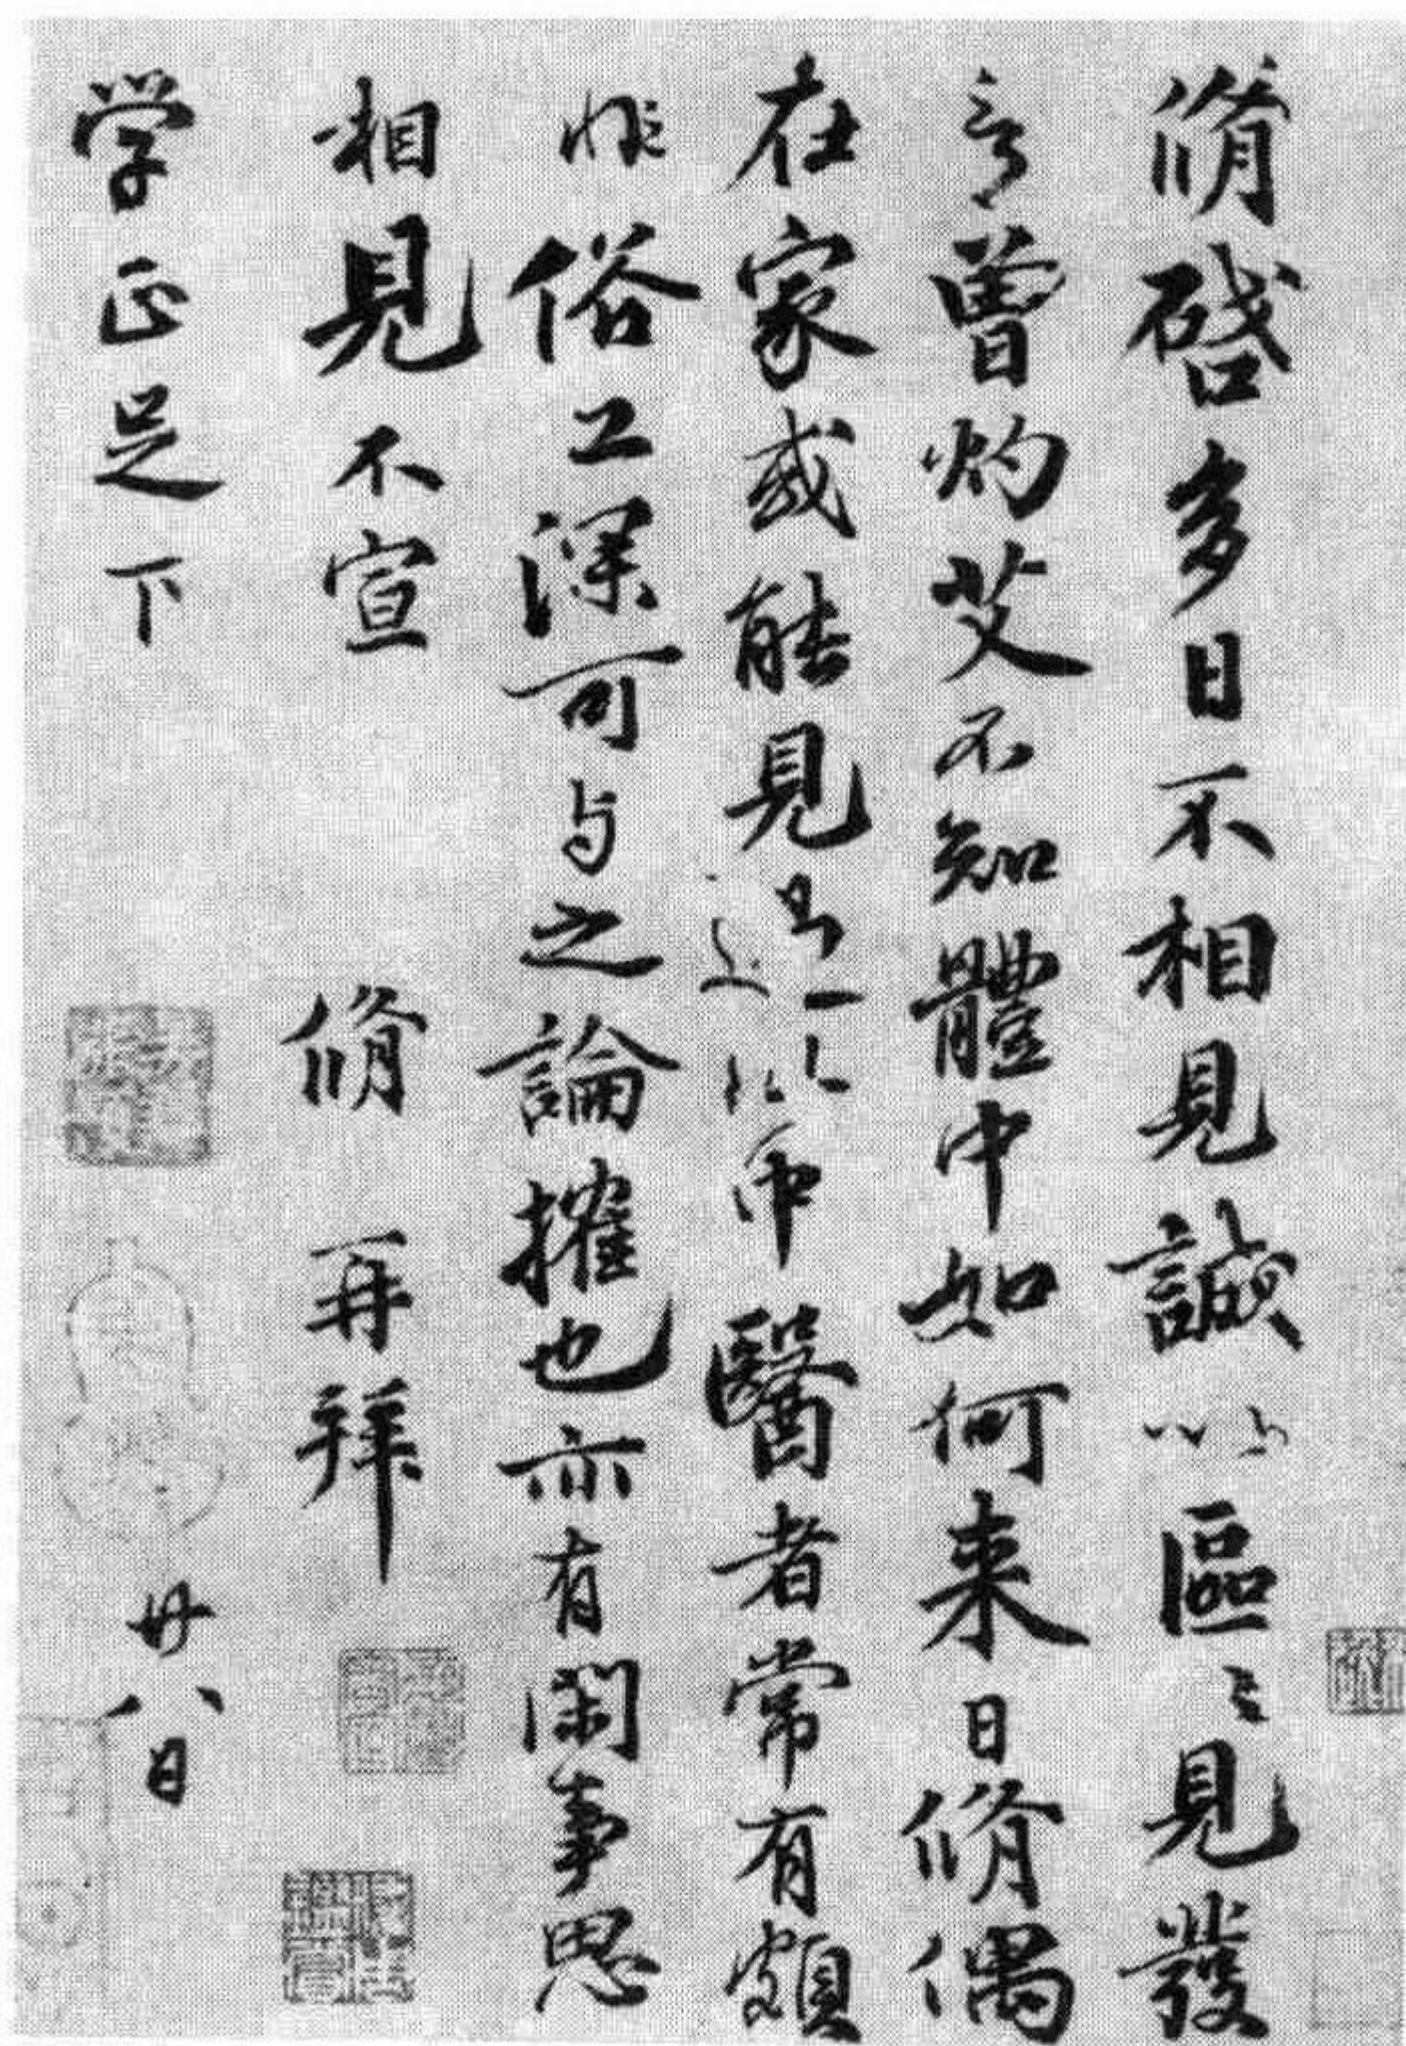 脩啓多日不相見誠以區〻見發
言曾灼艾不知體中如何来日脩偶
在家或能見過以中醫者常有頗
非俗工深可与之論搉也亦有閑事思
相見不宣　脩　再拜
学正足下　廿八日